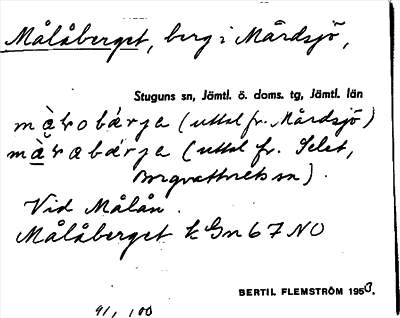 Målåberget, berg i Mårdsjö,
Stuguns sn, Jämtl. ö. doms. tg, Jämtl. län
(uttal fr. Mårdsjö)
(uttal fr. Selet,
Borgvattnets sn).
Vid Målån.
Målåberget k Gn 67 NO
BERTIL FLEMSTRÖM 1950.
91, 100